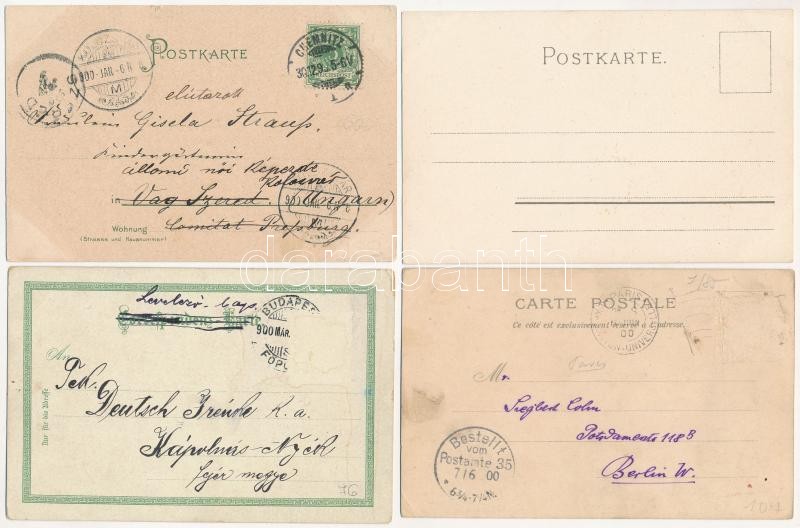 POSTKARTE
CHEMNITZ
900 JAN -6
M
elutazott
Fräulein Gisela Straup,
Kindergärtnerin
állami női Képezde
Kolozsvár
in Vag Szered. Ungarn)
900 JAN
Wohnung Comitat Pressburg.
(Strasse und Hausnummer)
POSTKARTE.
Levelező-Lap
Correspondenz-Karte
BUDAPEST
900 MÁR.
An
Nur für die Adresse
Deutsch
Kápolnás-Nyék
fejér megye
76
1/85
CARTE POSTALE
Ce côté est exclusivement réservé à l'adresse.
PARIS
00
Paris
Mr.
Siegbert Cohn
Potsdamerstr 118 B
Berlin W.
Bestellt
vom
Postamte 35
7/6 00
6¾-7¼N.
darabanth